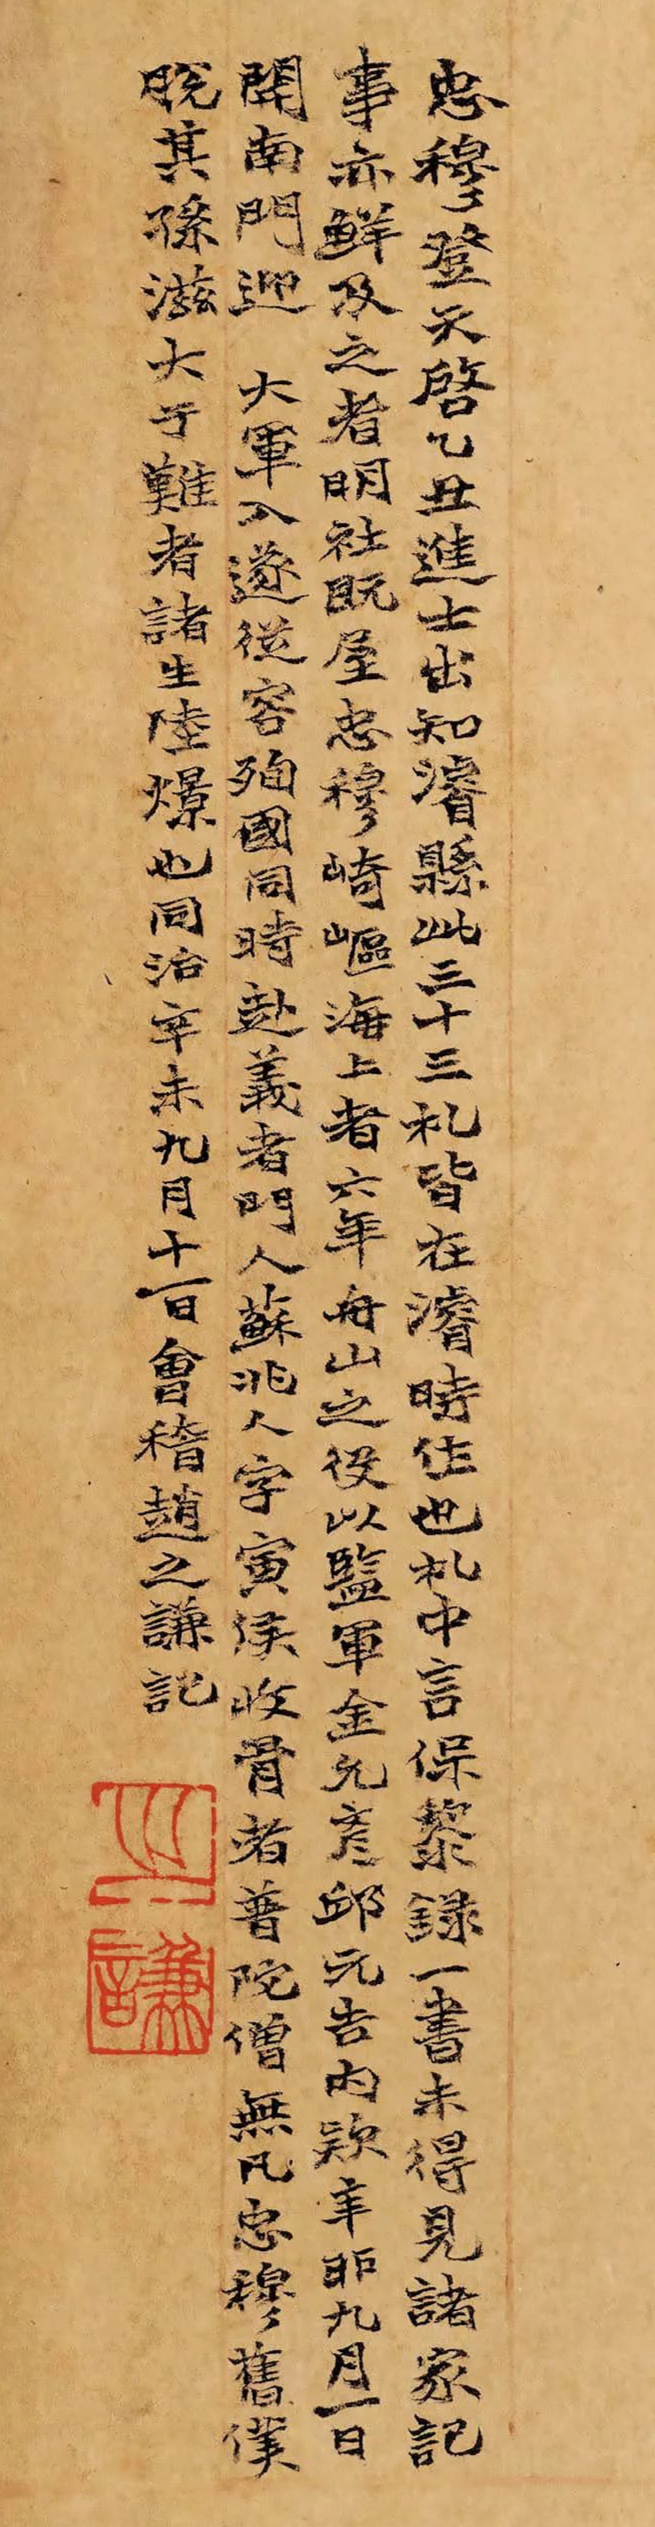 忠穆登天啓乙丑進士出知濬縣此三十三札皆在濬時作也札中言保黎録一書未得見諸家記
事亦鮮及之者明社既屋忠穆崎嶇海上者六年舟山之役以監軍金允彥邱元吉内款辛卯九月一日
開南門迎　大軍入遂從容殉國同時赴義者門人蘇兆人字寅侯收骨者普陀僧無凡忠穆舊僕
脱其孫滋大于難者諸生陸燝也同治辛未九月十一日會稽趙之謙記
之謙